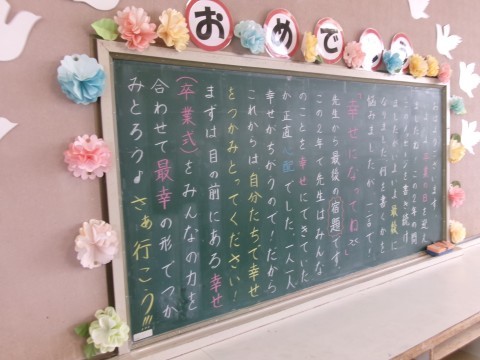 おめで
卒業の日を迎え
ましたね。この2年の間
悩みましたが、一言で!
「幸せになってね」
先生から最後の宿題です
この2年で先生はみんな
のことを幸せにできていた
か正直心配でした。一人一人
幸せがちがうので!だから
これからは自分たちで幸せ
をつかみとってください!
まずは目の前にある幸せ
(卒業式)をみんなの力を
合わせて最幸の形でつか
みとろう♪さぁ行こう!!!